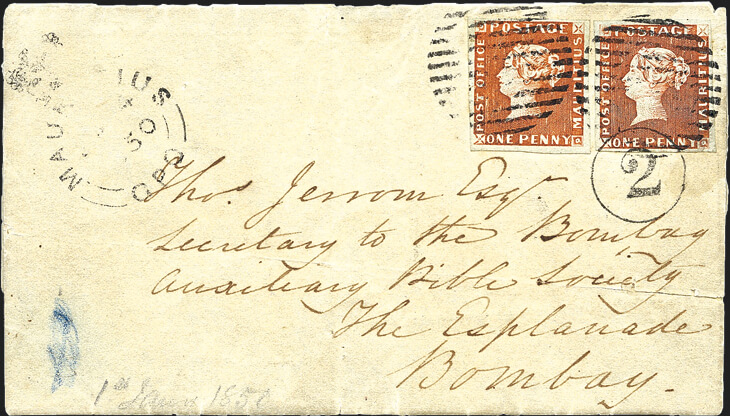 POST OFFICE POSTAGE MAURITIUS ONE PENNY
POST OFFICE POSTAGE MAURITIUS ONE PENNY
MAURITIUS
GPO
2
Thos. Jerrom Esqr
Secretary to the Bombay
Auxiliary Bible Society
The Esplanade
Bombay.
1850